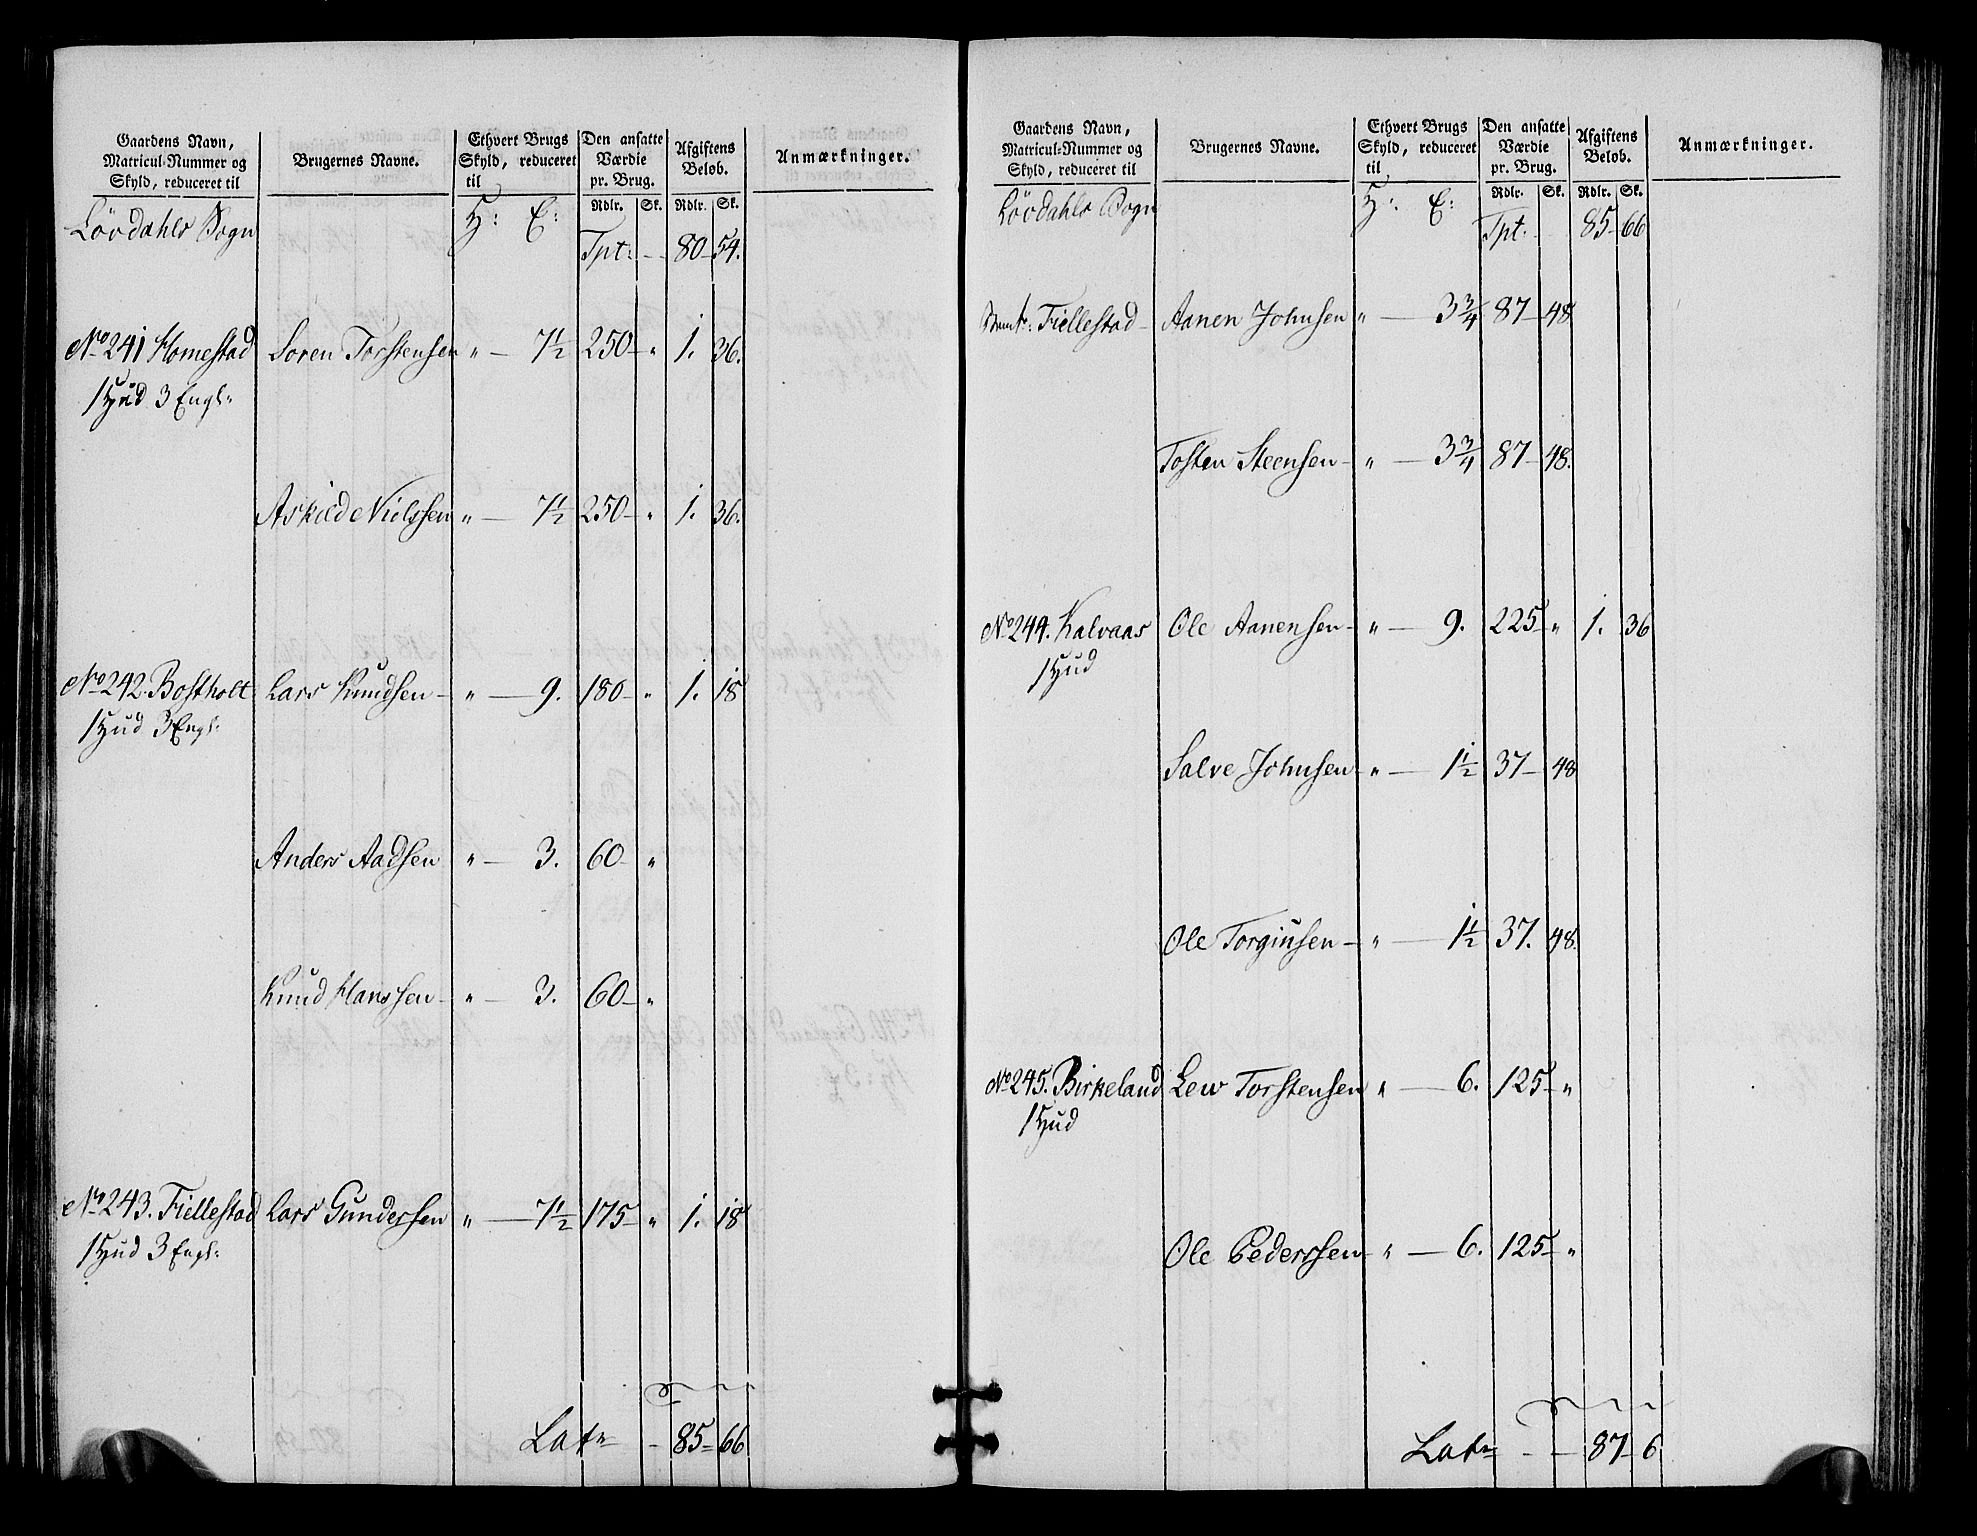 Gaardens Navn,
Matricul-Nummer og
Skyld, reduceret til
Brugernes Navne.
Ethvert Brugs
Skyld, reduceret
til
Den ansatte
Værdie
pr. Brug.
Afgiftens
Beløb.
Anmærkninger.
Rdlr. Sk. Rdlr. Sk.
Lövdahls Sogn H: E:
Tpt: - 80 - 54.
No 241 Homestad Soren Torstensen " - 7 1/2 250 - " 1. 36.
1 Hud 3 Engl:
Askild Nielssen " - 7 1/2 250 - " 1. 36.
No 242. Bostholt Lars Knudsen - " - 9. 180 - " 1. 18
1 Hud 3 Engl:
Anders Aadsen " - 3. 60 - "
Knud Hanssen - " - 3. 60 - "
No 243. Fiellestad Lars Gundersen " - 7 1/2 175 - " 1. 18
1 Hud 3 Engl:
Lat - 85 - 66
Gaardens Navn,
Matricul-Nummer og
Skyld, reduceret til
Brugernes Navne.
Ethvert Brugs
Skyld, reduceret
til
Den ansatte
Værdie
pr. Brug.
Afgiftens
Beløb.
Anmærkninger.
Rdlr. Sk. Rdlr. Sk.
Lövdahls Sogn H: E:
Tpt: 85 - 66
Fiellestad - Aanen Johnsen " - 3 3/4 87 - 48
Tosten Steensen - " - 3 3/4 87 - 48.
No 244. Kalvaas Ole Aanensen - " - 9. 225 - " 1. 36
1 Hud
Salve Johnsen - " - 1 1/2 37 - 48
Ole Torginsen - " - 1 1/2 37. 48.
No 245. Birkeland Lew Torstensen " - 6. 125 - "
1 Hud
Ole Pederssen - " - 6. 125 - "
Lat - - 87 - 6